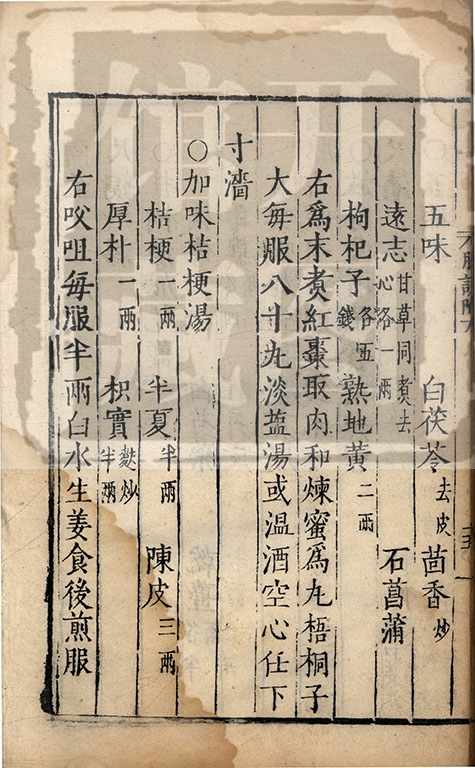 五味　白茯苓去皮　茴香炒
遠志甘草同煮去心各一兩　石菖蒲
枸杞子各五錢　熟地黃二兩
右爲末煮紅棗取肉和煉蜜爲丸梧桐子
大每服八十丸淡盐湯或温酒空心任下
寸濇
○加味桔梗湯
桔梗一兩　半夏半兩　陳皮三兩
厚朴一兩　枳實麩炒半兩
右㕮咀每服半兩白水生姜食後煎服